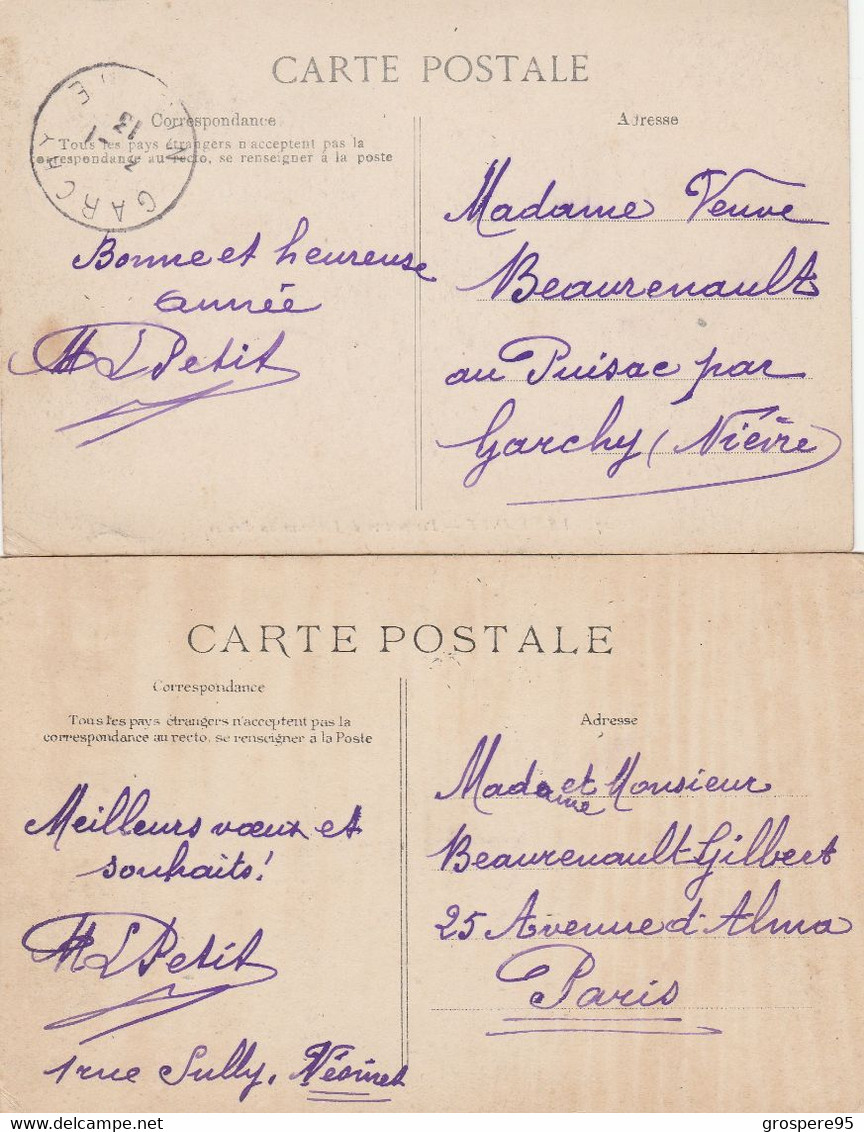 CARTE POSTALE
Correspondance
Tous les pays étrangers n'acceptent pas la
correspondance au recto, se renseigner à la poste
GARCHY
13
Bonne et heureuse
année
Petit
Adresse
Madame Veuve
Beaurenault
au Puisac par
Garchy (Nièvre)
CARTE POSTALE
Correspondance
Tous les pays étrangers n'acceptent pas la
correspondance au recto, se renseigner à la Poste
Meilleurs vœux et
souhaits!
Petit
1 rue Sully,
Adresse
Madame et Monsieur
Beaurenault-Gilbert
25 Avenue d'Alma
Paris
grospere95